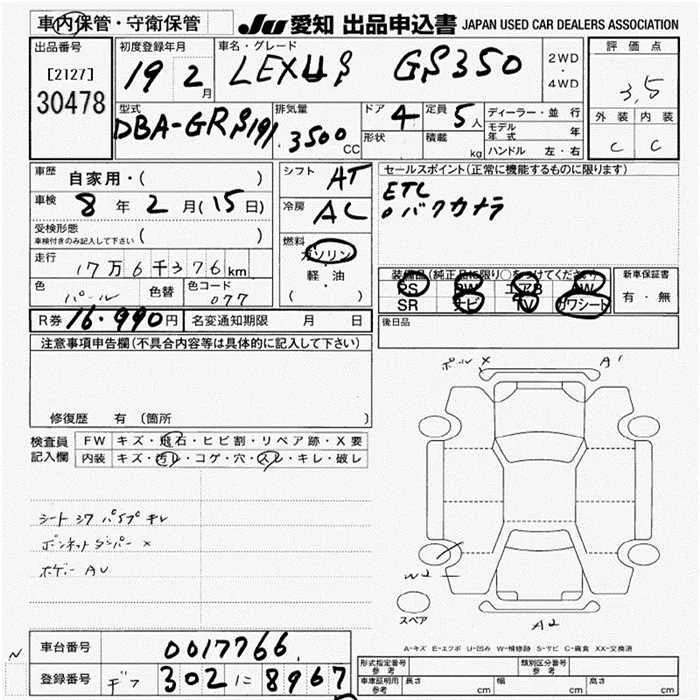 車内保管・守衛保管 JU 愛知 出品申込書 JAPAN USED CAR DEALERS ASSOCIATION
出品番号 [2127] 30478
初度登録年月 19 2月
車名・グレード LEXUS GS350
2WD・4WD
評価点 3,5
外装 内装
C C
型式 DBA-GRS191
排気量 3500 CC
ドア 4 定員 5人
形状 積載 kg
ディーラー・並行
モデル年式 年
ハンドル 左・右
車歴 自家用・( )
車検 8年2月(15日)
受検形態 車検付きのみ記入して下さい ( )
走行 17万6千376km
色 パール 色替 色コード 077
シフト AT
冷房 AC
燃料 ガソリン・軽・油 ( )
R券 16.990円 名変通知期限 月 日
セールスポイント(正常に機能するものに限ります)
ETC
バクカメラ
装備品(純正品に限り○をつけてください)
PS PW エアB AW
SR ナビ TV カワシート
新車保証書 有・無
後日品
注意事項申告欄(不具合内容等は具体的に記入して下さい)
修復歴 有 (箇所 )
検査員記入欄
FW キズ・飛石・ヒビ割・リペア跡・X要
内装 キズ・汚レ・コゲ・穴・スレ・キレ・破レ
シート シワ パイプ キレ
ボンネットダンパー ×
ボデー AU
ポール X A1
W2
A2
スペア
A-キズ E-エクボ U-凹み W-補修跡 S-サビ C-腐食 XX-交換済
車台番号 0017766
登録番号 ギフ 302 に 8967
形式指定番号 参考 類別区分番号 参考
車庫証明用 参考 長さ cm 幅 cm 高さ cm